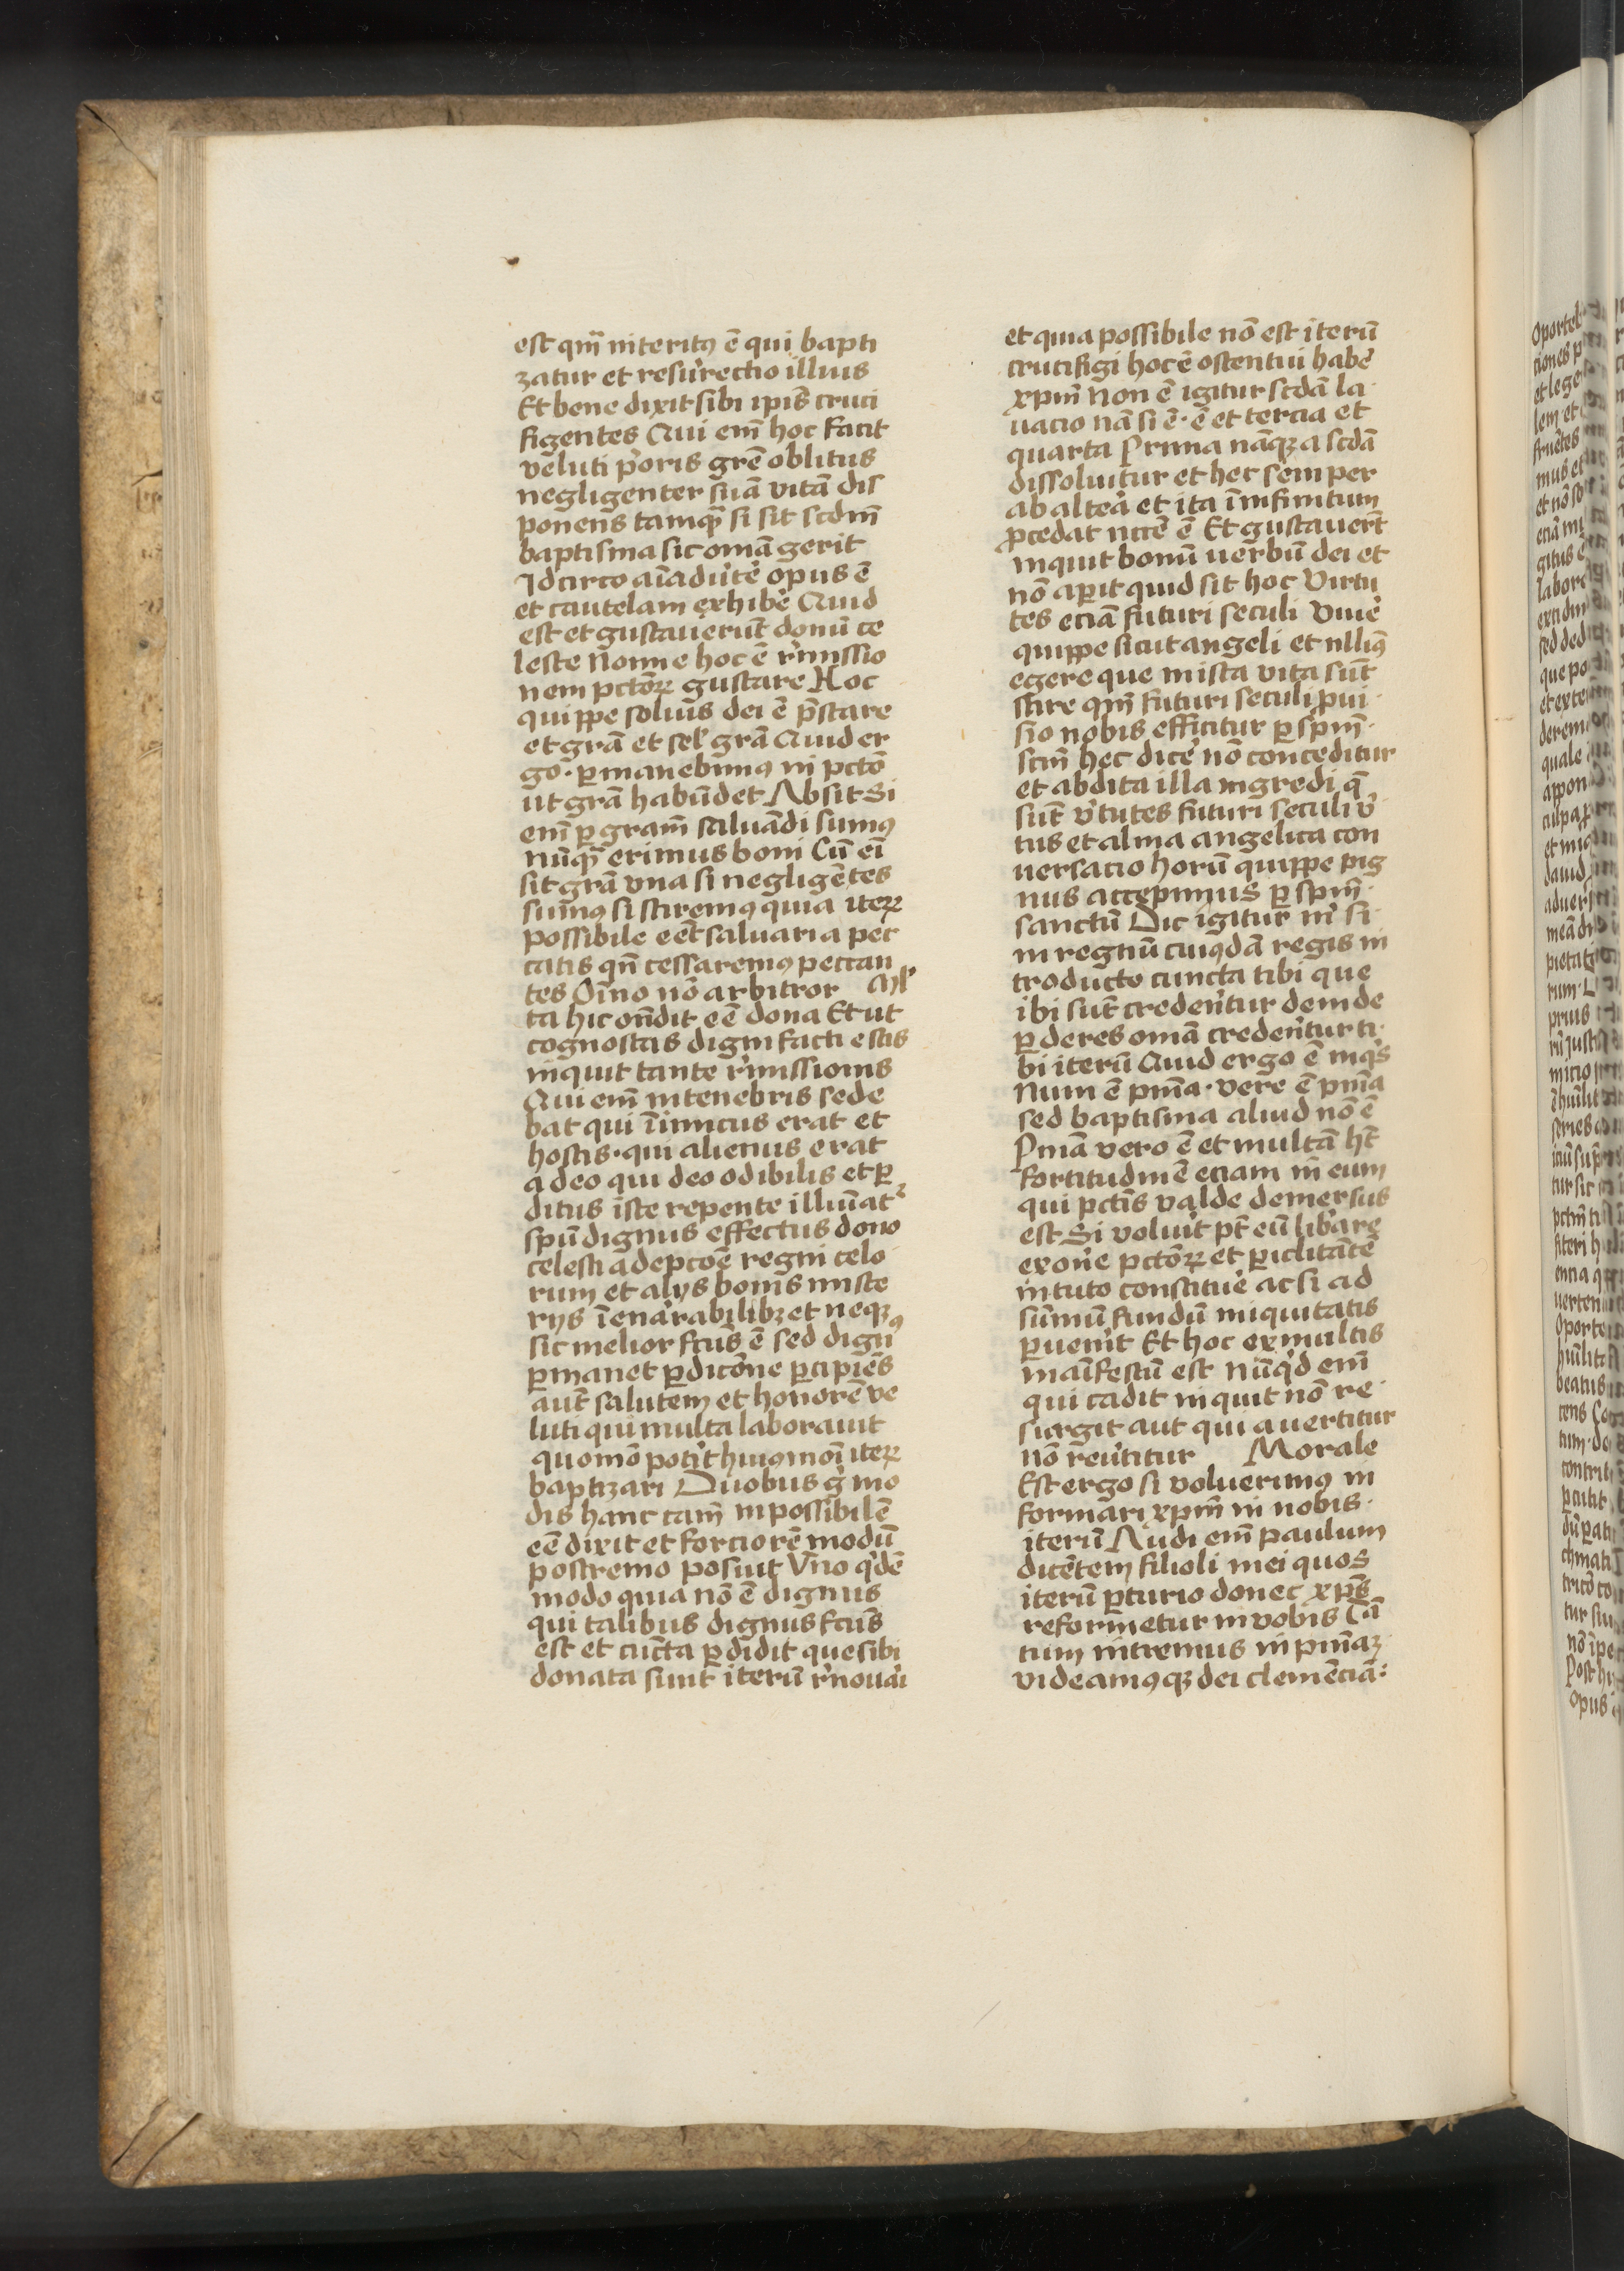 est qm̄ interitꝰ ē qui bapti
zatur et resur̉rectio illius
Et bene dixit sibi ip̄is cruci
figentes Qui em̄ hoc facit
veluti p̉oris grē oblitus
negligenter suā vitā dis
ponens tamqꝫ si sit scdm̄
baptisma sic om̄ia gerit
Idcirco aīadủtẻ opus ē
et cautelam exhibẻ Quid
est et gustauerūt donū ce
leste Nonne hoc ē r̉missio
nem pctōꝝ gustare Hoc
quippe soluīs dei ē p̄stare
et grā et sel̉ grā Quid er
go · ꝑmanebimꝰ in pctō
ut grā habūdet Absit Si
em̄ ꝑ gram̄ saluādi sumꝰ
nūqꝫ erimus boni Cū ei̅
sit grā vna si negligētes
sumꝰ si sciremꝰ quia iteꝝ
possibile eēt saluari a pec
catis qn̄ cessaremꝰ peccan
tes Oīno nō arbitror
ta hic on̄dit eē dona Et ut
cognoscas digni facti estis
inquit tante r̉missionis
Qui em̄ in tenebris sede
bat qui īimicus erat et
hostis · qui alienus erat
a deo qui deo odibilis et ꝑ
ditus iste repente illuīat᷑
spū dignus effectus dono
celesti adepcōē regni celo
rum et alijs bonis miste
rijs īenarrabilibꝫ et neqꝫ
sic melior fcūs ē sed dignꝰ
ꝑmanet ꝑdicōne ꝑcipiēs
aut̄ salutem et honorē ve
luti qui multa laborauit
quomō pot̉it huiꝰmōi iteꝝ
baptizari Duobus g̉ mo
dis hanc cām inpossibilē
eē dixit et forciorē modū
postremo posuit Vno q̉dē
modo quia nō ē dignus
qui talibus dignus fcūs
est et cūcta ꝑdidit que sibi
donata sunt iterū r̉nouari
et quia possibile nō est iterū
crucifigi hoc ē ostentui habẻ
xp̄m Non ē igitur scdā la
uacio nā si ē · ē et tercia et
quarta Prima nāqꝫ a scdā
dissoluitur et hec semper
ab altẻa et ita ī infinitum
ꝓcedat nccē ē Et gustauer̄t
inquit bonū uerbū dei et
nō aꝑit quid sit hoc Virtu
tes eciā futuri seculi Viuẻ
quippe sicut angeli et nlliꝰ
egere que in ista vita sūt
scire qm̄ futuri seculi ꝓui
sio nobis efficitur ꝑ spm̄
scm̄ hec dicẻ nō conceditur
et abdita illa ingredi q̄
sūt v̉tutes futuri seculi v̉
tus et alma angelica con
uersacio horū quippe pig
nus accepimus ꝑ spm̄
sanctū Dic igitur m̉ si
in regnū cuiꝰdā regis in
troducto cuncta tibi que
ibi sūt credentur deinde
ꝑderes om̄ia credentur ti
bi iterū Quid ergo ē inq̉s
Num ē pn̄ia · vere ē pn̄ia
sed baptisma aliud nō ē
Pn̄ia vero ē et multā hēt
fortitudinē eciam in eum
qui pctīs valde demersus
est Si volủit pt̄ eū lib̉are
exonẻ pctōꝝ et ꝑiclitātē
in tuto constituẻ ac si ad
summū fundū iniquitatis
ꝑuen̉it Et hoc ex multis
maīfestū est nūq̉d em̄
qui cadit inquit nō re
surgit aut qui auertitur
nō reủtitur Morale
Est ergo si voluerimꝰ in
formari xp̄m in nobis
iterū Audi em̄ paulum
dicētem filioli mei quos
iterū ꝑturio donec xp̄s
reformetur in vobis Tā
tum intremus in pn̄iaꝫ
videamꝰqꝫ dei clemēciā :